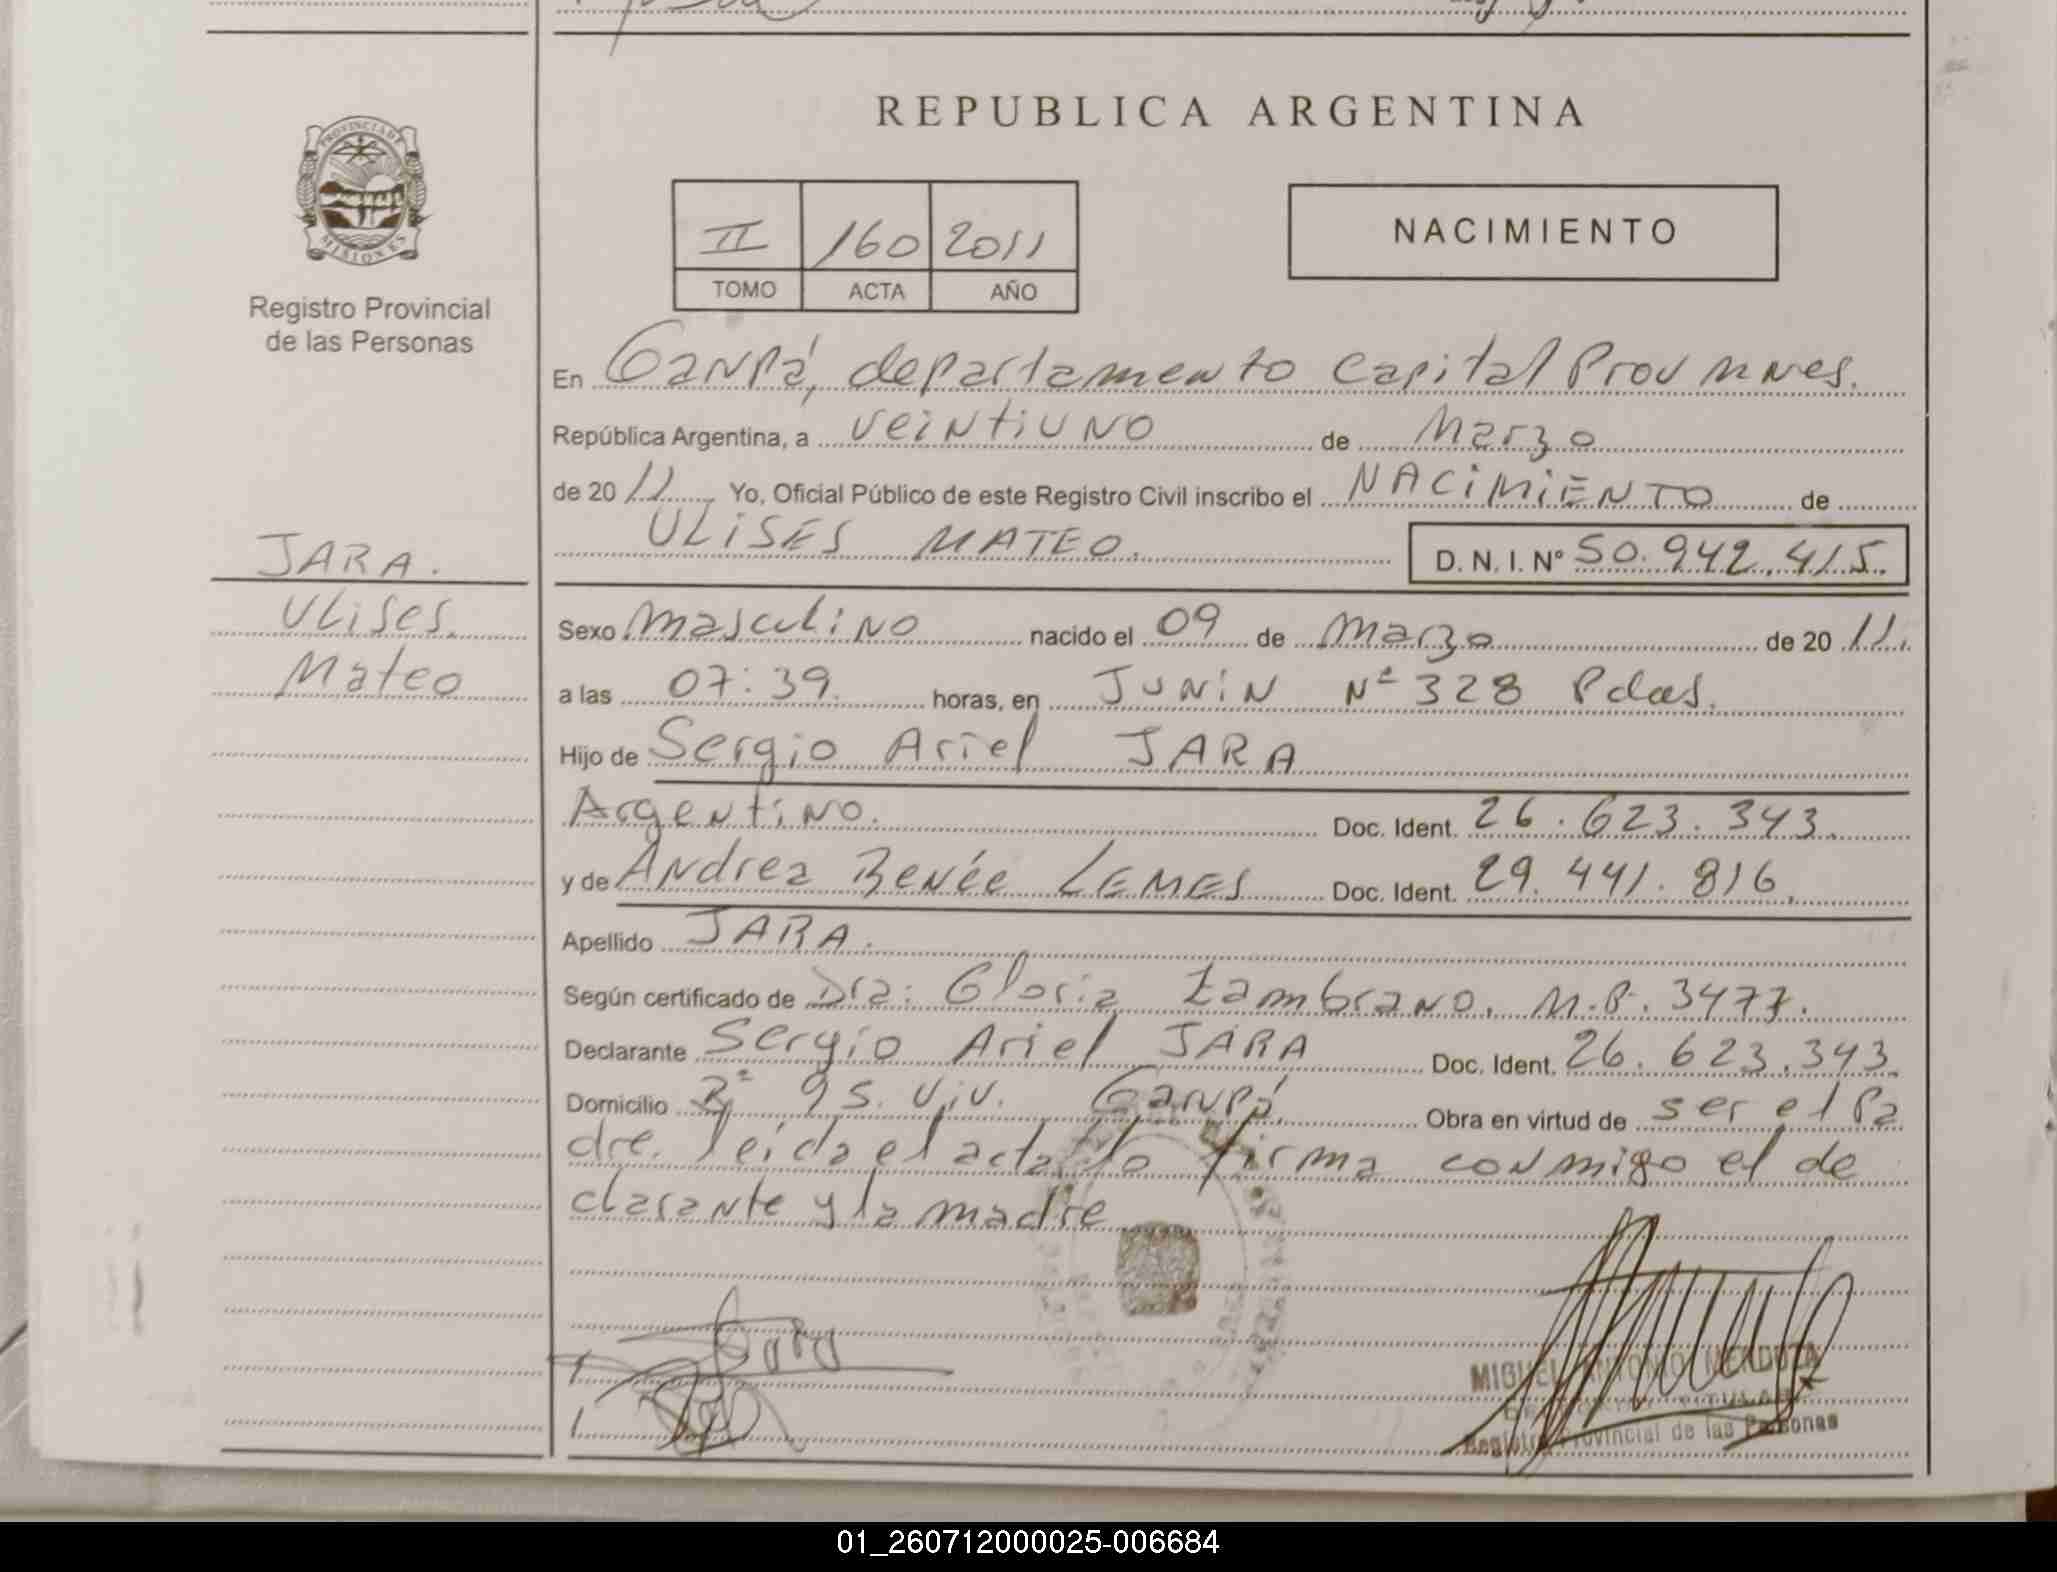 REPUBLICA ARGENTINA
PROVINCIA DE MISIONES
Registro Provincial
de las Personas
II 160 2011
TOMO ACTA AÑO
NACIMIENTO
En Garupá, departamento Capital Prov Mnes.
República Argentina, a veintiuno de Marzo
de 20 11 Yo, Oficial Público de este Registro Civil inscribo el NACIMIENTO de
ULISES MATEO.
D. N. I. Nº 50.942.415.
JARA.
Ulises
Mateo
Sexo masculino nacido el 09 de marzo de 20 11.
a las 07:39 horas, en JUNIN Nº 328 Pdas.
Hijo de Sergio Ariel JARA
Argentino. Doc. Ident. 26.623.343.
y de Andrea Renée LEMES Doc. Ident. 29.441.816.
Apellido JARA.
Según certificado de Dra: Gloria Zambrano. M.P. 3477.
Declarante Sergio Ariel JARA Doc. Ident. 26.623.343.
Domicilio 95. Viv. Garupá. Obra en virtud de ser el Pa
dre. leida el acta la firma conmigo el de
clarante y la madre
MIGUEL ANTONIO MENDOZA
Registro Provincial de las Personas
01_260712000025-006684